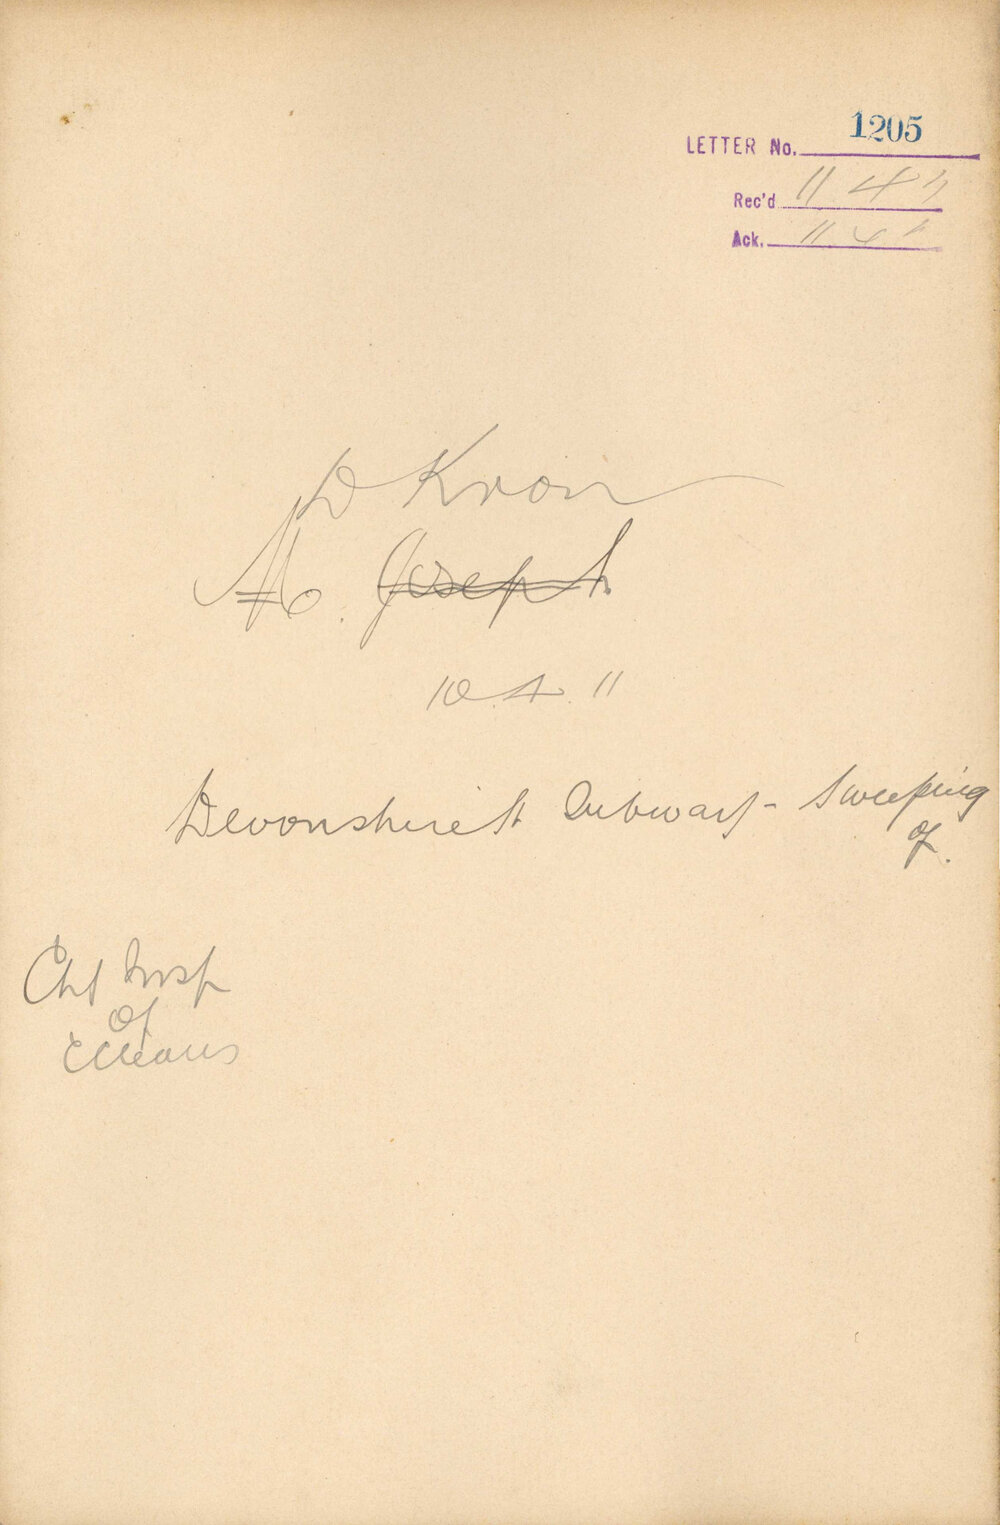 LETTER No. 1205
Rec'd 11 4 11
Ack. 11 4 11
D Kron
M. Joseph
10.4.11
Devonshire St Subway - Sweeping
of.
Cht Insp
of